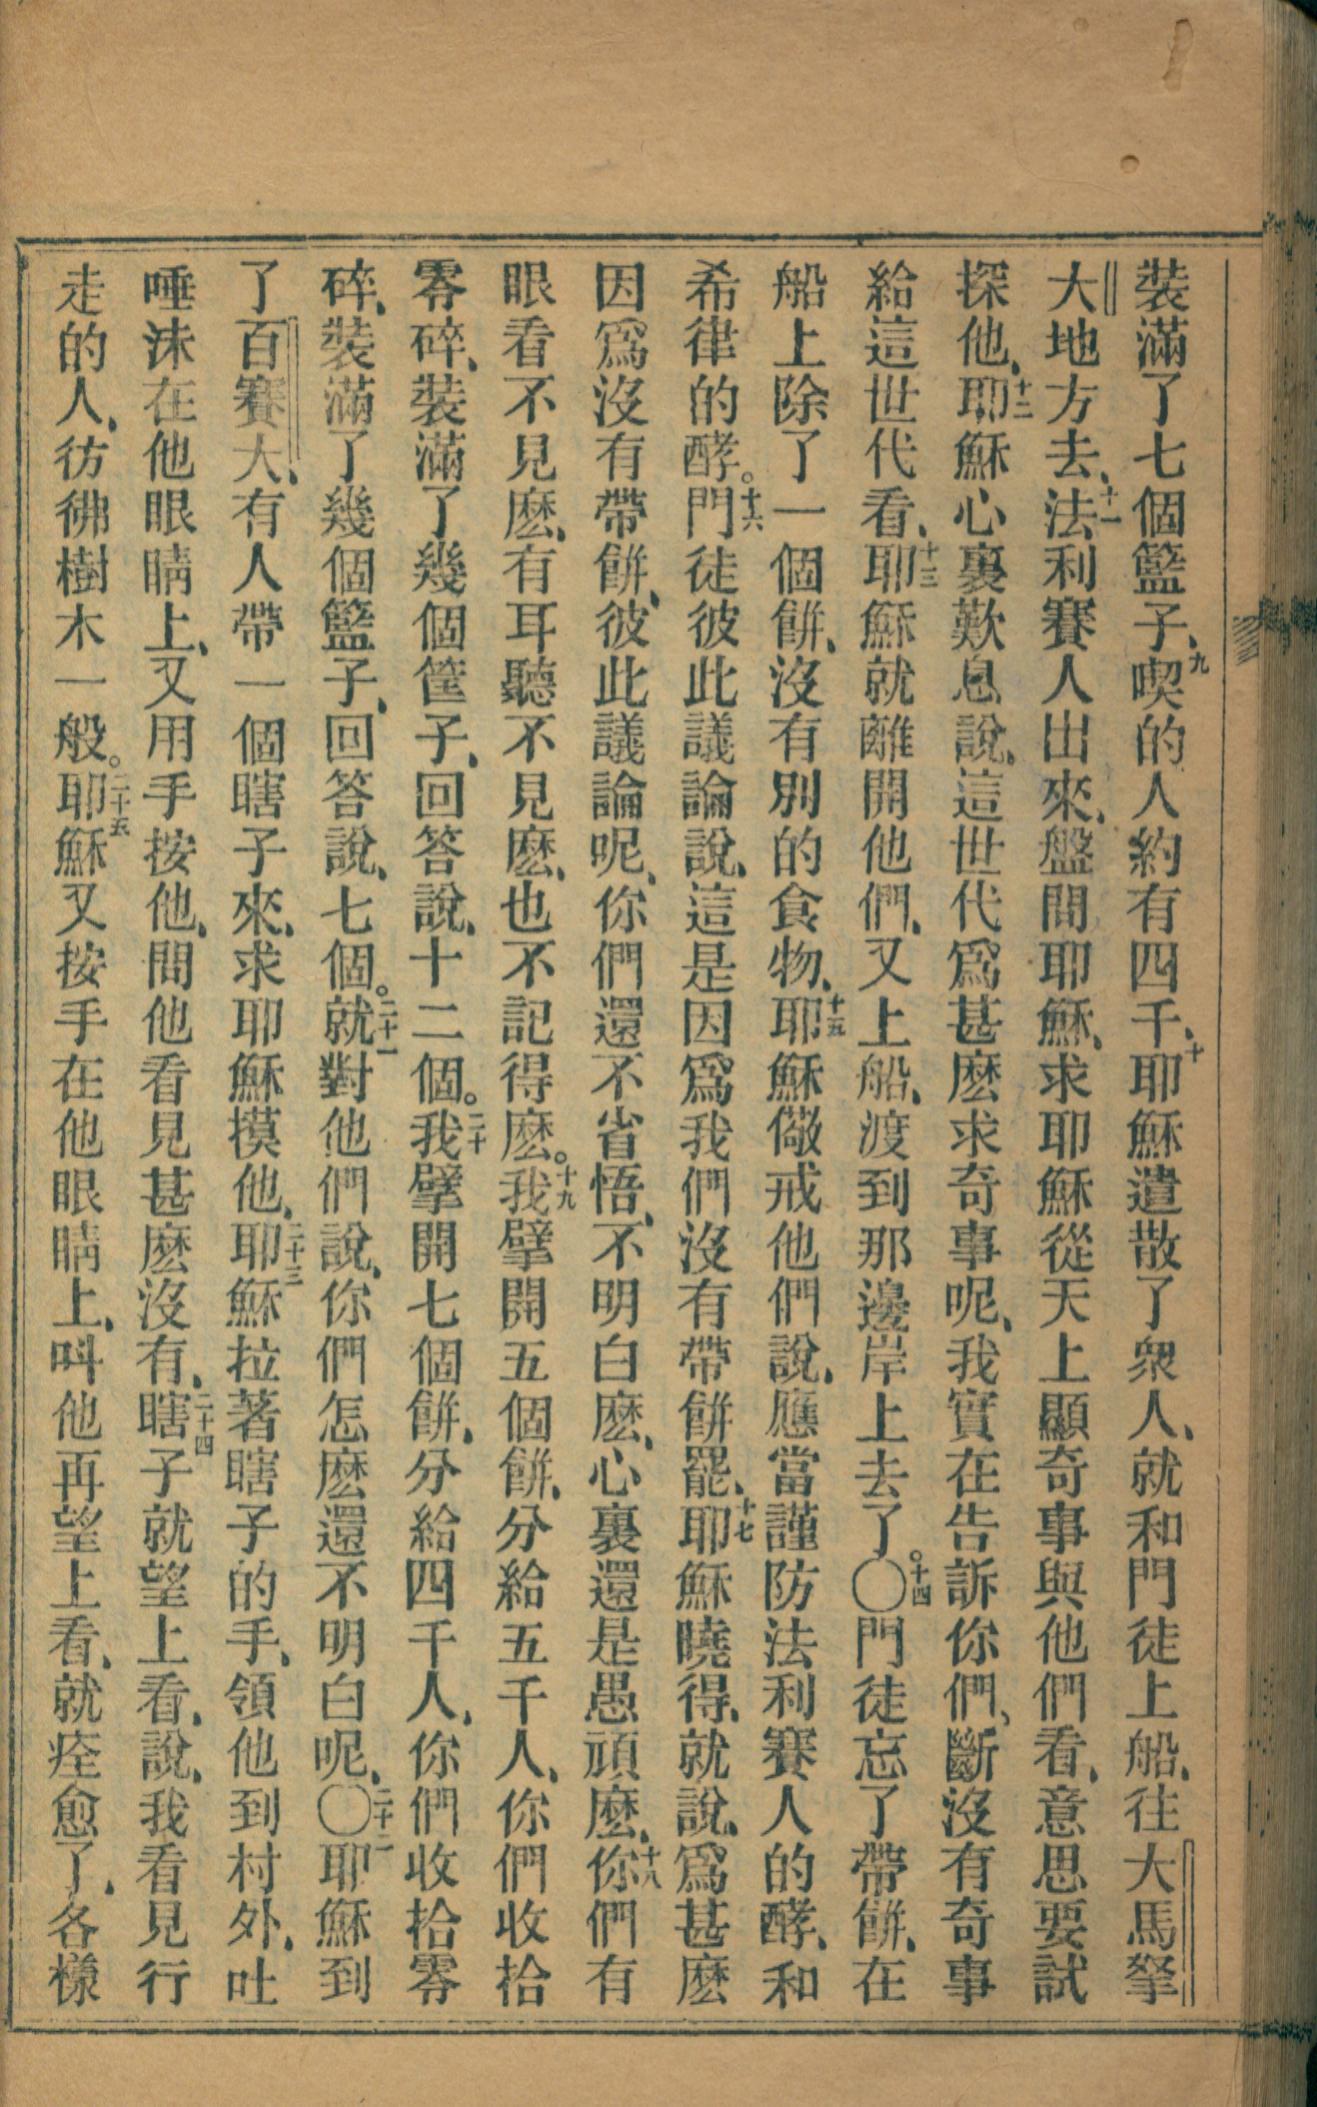 裝滿了七個籃子、九喫的人約有四千、十耶穌遣散了衆人、就和門徒上船、往大馬拏
大地方去、十一法利賽人出來、盤問耶穌、求耶穌從天上顯奇事與他們看、意思要試
探他、十二耶穌心裏歎息說、這世代爲甚麽求奇事呢、我實在告訴你們、斷沒有奇事
給這世代看、十三耶穌就離開他們、又上船、渡到那邊岸上去了。〇十四門徒忘了帶餅、在
船上除了一個餅、沒有別的食物、十五耶穌儆戒他們說、應當謹防法利賽人的酵、和
希律的酵。十六門徒彼此議論說、這是因爲我們沒有帶餅罷、十七耶穌曉得、就說、爲甚麽
因爲沒有帶餅、彼此議論呢、你們還不省悟、不明白麽、心裏還是愚頑麽、十八你們有
眼看不見麽、有耳聽不見麽、也不記得麽。十九我擘開五個餅、分給五千人、你們收拾
零碎、裝滿了幾個筐子、回答說、十二個。二十我擘開七個餅、分給四千人、你們收拾零
碎、裝滿了幾個籃子、回答說、七個。二十一就對他們說、你們怎麽還不明白呢、〇二十二耶穌到
了百賽大、有人帶一個瞎子來、求耶穌摸他、二十三耶穌拉著瞎子的手、領他到村外、吐
唾沫在他眼睛上、又用手按他、問他看見甚麽沒有、二十四瞎子就望上看、說、我看見行
走的人、彷彿樹木一般。二十五耶穌又按手在他眼睛上、呌他再望上看、就痊愈了、各樣